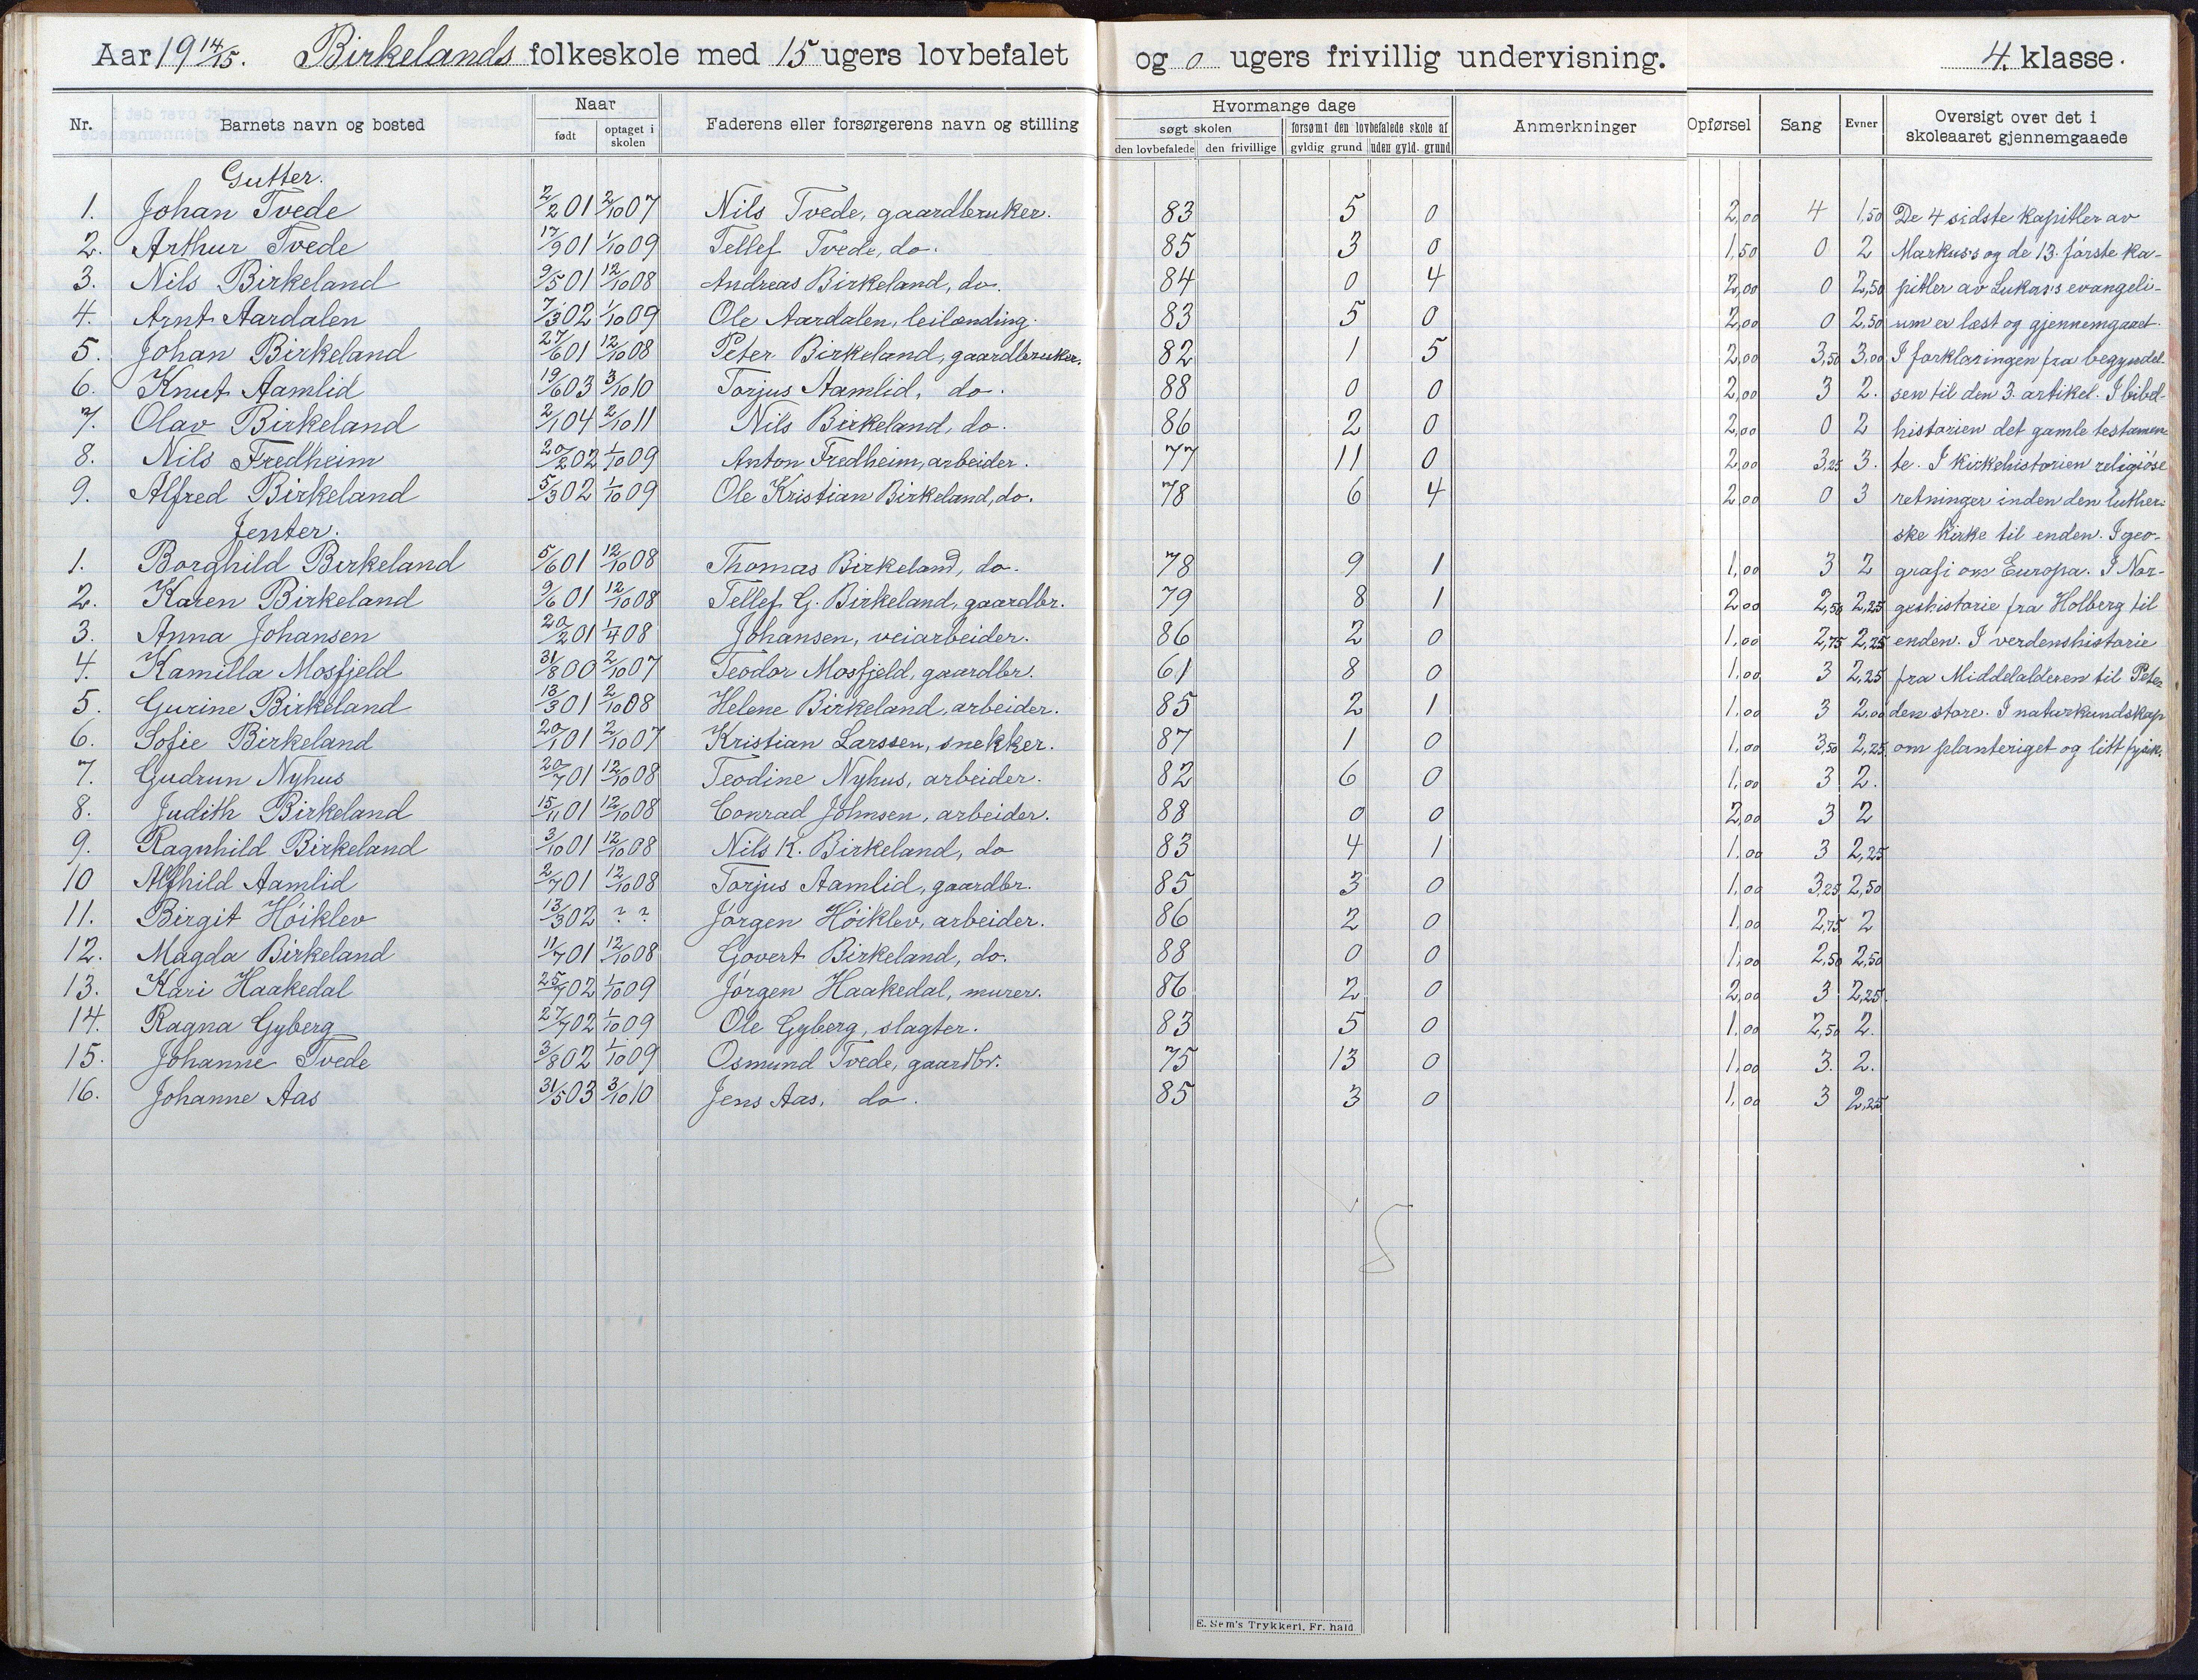 Aar 19 14/15. Birkelands folkeskole med 15 ugers lovbefalet og 0 ugers frivillig undervisning. 4. klasse.
Nr. Barnets navn og bosted Naar født optaget i skolen Faderens eller forsørgerens navn og stilling Hvormange dage søgt skolen den lovbefalede den frivillige forsømt den lovbefalede skole af gyldig grund uden gyld. grund Anmerkninger Opførsel Sang Evner Oversigt over det i skoleaaret gjennemgaaede
Gutter.
1. Johan Tvede 2/2 01 2/10 07 Nils Tvede, gaardbruker. 83 5 0 2,00 4 1,50 De 4 sidste kapitler av
2. Arthur Tvede 17/9 01 1/10 09 Tellef Tvede, do. 85 3 0 1,50 0 2 Markus's og de 13. første ka-
3. Nils Birkeland 9/5 01 12/10 08 Andreas Birkeland, do. 84 0 4 2,00 0 2,50 pitler av Lukas's evangeli-
4. Arnt Aardalen 7/3 02 1/10 09 Ole Aardalen, leilænding. 83 5 0 2,00 0 2,50 um er læst og gjennemgaaet.
5. Johan Birkeland 27/6 01 12/10 08 Peter Birkeland, gaardbruker. 82 1 5 2,00 3,50 3,00 I forklaringen fra begyndel-
6. Knut Aamlid 19/6 03 3/10 10 Torjus Aamlid, do. 88 0 0 2,00 3 2. sen til den 3. artikel. I bibel-
7. Olav Birkeland 2/1 04 2/10 11 Nils Birkeland, do. 86 2 0 2,00 0 2 historien det gamle testamen-
8. Nils Fredheim 20/2 02 1/10 09 Anton Fredheim, arbeider. 77 11 0 2,00 3,25 3. te. I kirkehistorien religiøse
9. Alfred Birkeland 5/3 02 1/10 09 Ole Kristian Birkeland, do. 78 6 4 2,00 0 3 retninger inden den luther-
Jenter. ske kirke til enden. I geo-
1. Borghild Birkeland 5/6 01 12/10 08 Thomas Birkeland, do. 78 9 1 1,00 3 2 grafi om Europa. I Nor-
2. Karen Birkeland 9/6 01 12/10 08 Tellef G. Birkeland, gaardbr. 79 8 1 2,00 2,50 2,25 geshistorie fra Holberg til
3. Anna Johansen 20/2 01 1/4 08 Johansen, veiarbeider. 86 2 0 1,00 2,75 2,25 enden. I verdenshistorie
4. Kamilla Mosfjeld 31/8 00 2/10 07 Teodor Mosfjeld, gaardbr. 61 8 0 1,00 3 2,25 fra Middelalderen til Peter
5. Gurine Birkeland 13/3 01 2/10 08 Helene Birkeland, arbeider. 85 2 1 1,00 3 2,00 den store. I naturkundskap
6. Sofie Birkeland 20/1 01 2/10 07 Kristian Larssen, snekker. 87 1 0 1,00 3,50 2,25 om planteriget og litt fysik.
7. Gudrun Nyhus 20/7 01 12/10 08 Teodine Nyhus, arbeider. 82 6 0 1,00 3 2.
8. Judith Birkeland 15/11 01 12/10 08 Conrad Johnsen, arbeider. 88 0 0 2,00 3 2
9. Ragnhild Birkeland 3/10 01 12/10 08 Nils K. Birkeland, do 83 4 1 1,00 3 2,25
10 Alfhild Aamlid 2/7 01 12/10 08 Torjus Aamlid, gaardbr. 85 3 0 1,00 3,25 2,50
11. Birgit Høiklev 13/3 02 ? ? Jørgen Høiklev, arbeider. 86 2 0 1,00 2,75 2
12. Magda Birkeland 11/7 01 12/10 08 Govert Birkeland, do. 88 0 0 1,00 2,50 2,50
13. Kari Haakedal 25/7 02 1/10 09 Jørgen Haakedal, murer. 86 2 0 2,00 3 2,25.
14. Ragna Gyberg 27/7 02 1/10 09 Ole Gyberg, slagter. 83 5 0 1,00 2,50 2.
15. Johanne Tvede 3/8 02 1/10 09 Osmund Tvede, gaardbr. 75 13 0 1,00 3. 2.
16. Johanne Aas 31/5 03 3/10 10 Jens Aas, do. 85 3 0 1,00 3 2,25
E. Sem's Trykkeri, Fr. hald